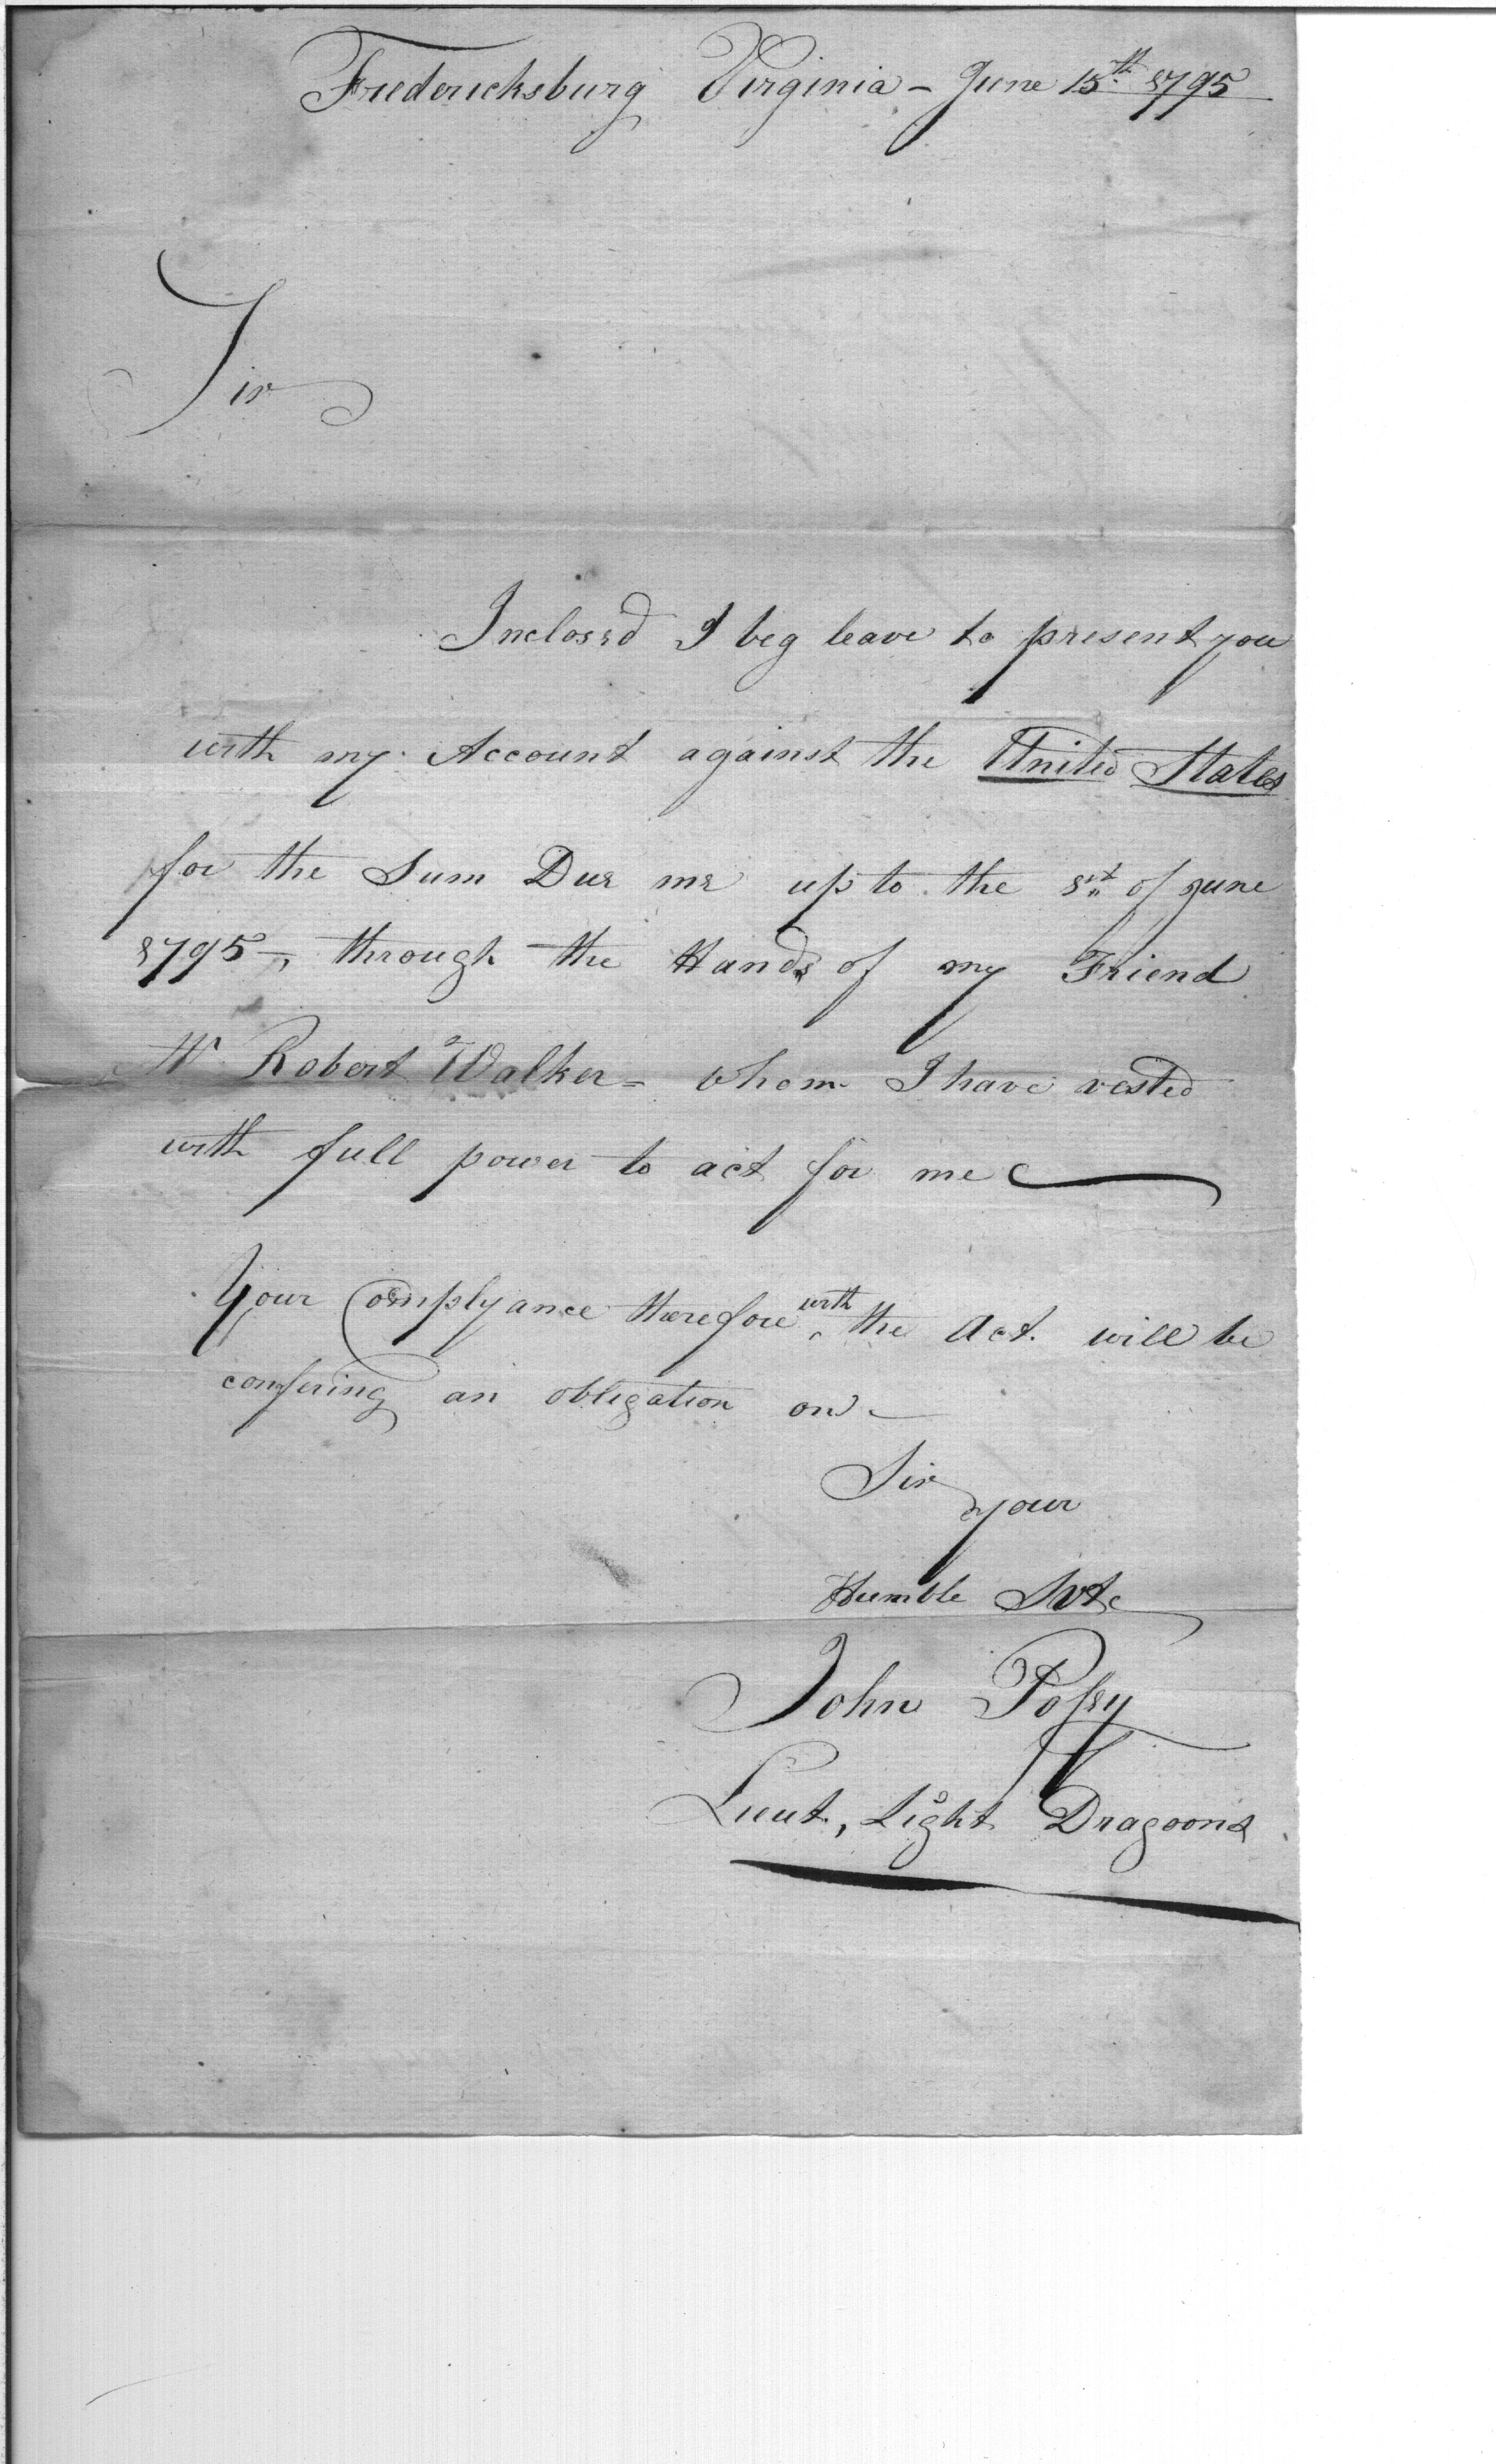 Fredericksburg Virginia – June 15th 1795
Sir
Inclosed I beg leave to present you
with my Account against the United States
for the Sum Due me up to the 1st of June
1795 –, through the Hands of my Friend
Mr Robert Walker = whom I have vested
with full power to act for me
Your Complyance therefore with the Act. will be
confering an obligation on –
Sir
your
Humble Svt
John Posey
Lieut, Light Dragoons